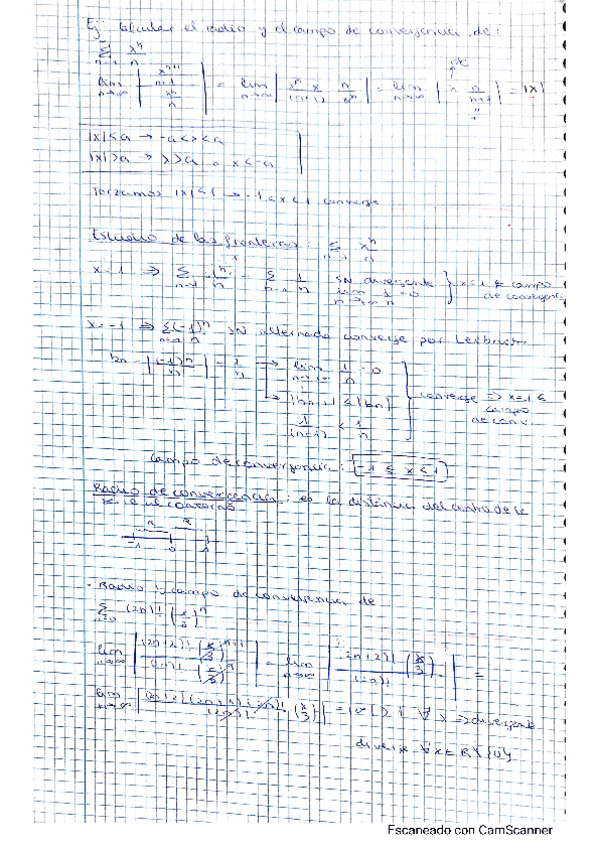 Ej: Calcular el radio y el campo de convergencia de:
∑ xⁿ/n
n=1
lim n→∞ | (xⁿ⁺¹/(n+1)) / (xⁿ/n) | = lim n→∞ | xⁿ x/(n+1) · n/xⁿ | = lim n→∞ | x n/(n+1) | = |x|
|x|<a → -a<x<a
|x|>a → x>a o x<-a
Forzamos |x|<1 → -1<x<1 converge
Estudio de las fronteras: ∑ xⁿ/n
x=1 ⇒ ∑ 1ⁿ/n = ∑ 1/n divergente } x=1 ∉ campo
lim n→∞ 1/n = 0 de convergencia
x=-1 ⇒ ∑ (-1)ⁿ/n alternada converge por Leibniz
bn = |(-1)ⁿ/n| = 1/n → lim n→∞ 1/n = 0
→ |bn+1| ≤ |bn| converge ⇒ x=-1 ∈
1/(n+1) < 1/n campo
de conv.
Campo de convergencia: -1 ≤ x < 1
Radio de convergencia: es la distancia del centro de la
serie al
R R
-1 0 1
- Radio y campo de convergencia de
∑ (2n)! (x/3)ⁿ
n=0
lim n→∞ | (2n+2)! (x/3)ⁿ⁺¹ / ((2n)! (x/3)ⁿ) | = lim n→∞ | (2n+2)! (x/3) / (2n)! | =
lim n→∞ | (2n+2)(2n+1)(2n)! / (2n)! (x/3) | = |∞| > 1 ∀x ⇒ divergente
diverge ∀x ∈ R \ {0}
Escaneado con CamScanner